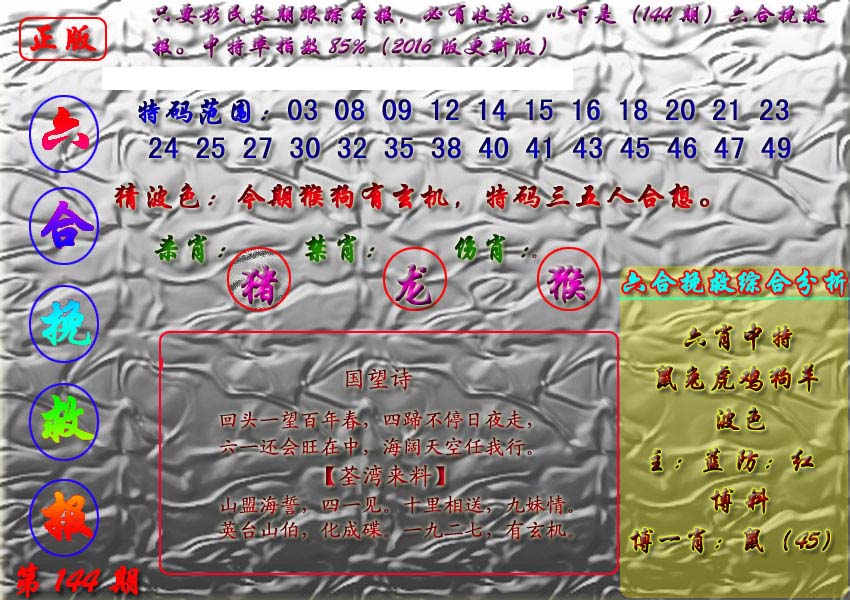 正版
只要彩民长期跟踪本报，必有收获。以下是（144期）六合挽救
报。中特率指数85%（2016版更新版）
六合挽救报
第144期
特码范围：03 08 09 12 14 15 16 18 20 21 23
24 25 27 30 32 35 38 40 41 43 45 46 47 49
猜波色：今期猴狗有玄机，特码三五人合想。
杀肖：猪 禁肖：龙 伤肖：猴
国望诗
回头一望百年春，四蹄不停日夜走，
六一还会旺在中，海阔天空任我行。
【荃湾来料】
山盟海誓，四一见。十里相送，九妹情。
英台山伯，化成碟。一九二七，有玄机。
六合挽救综合分析
六肖中特
鼠兔虎鸡狗羊
波色
主：蓝防：红
博料
博一肖：鼠（45）